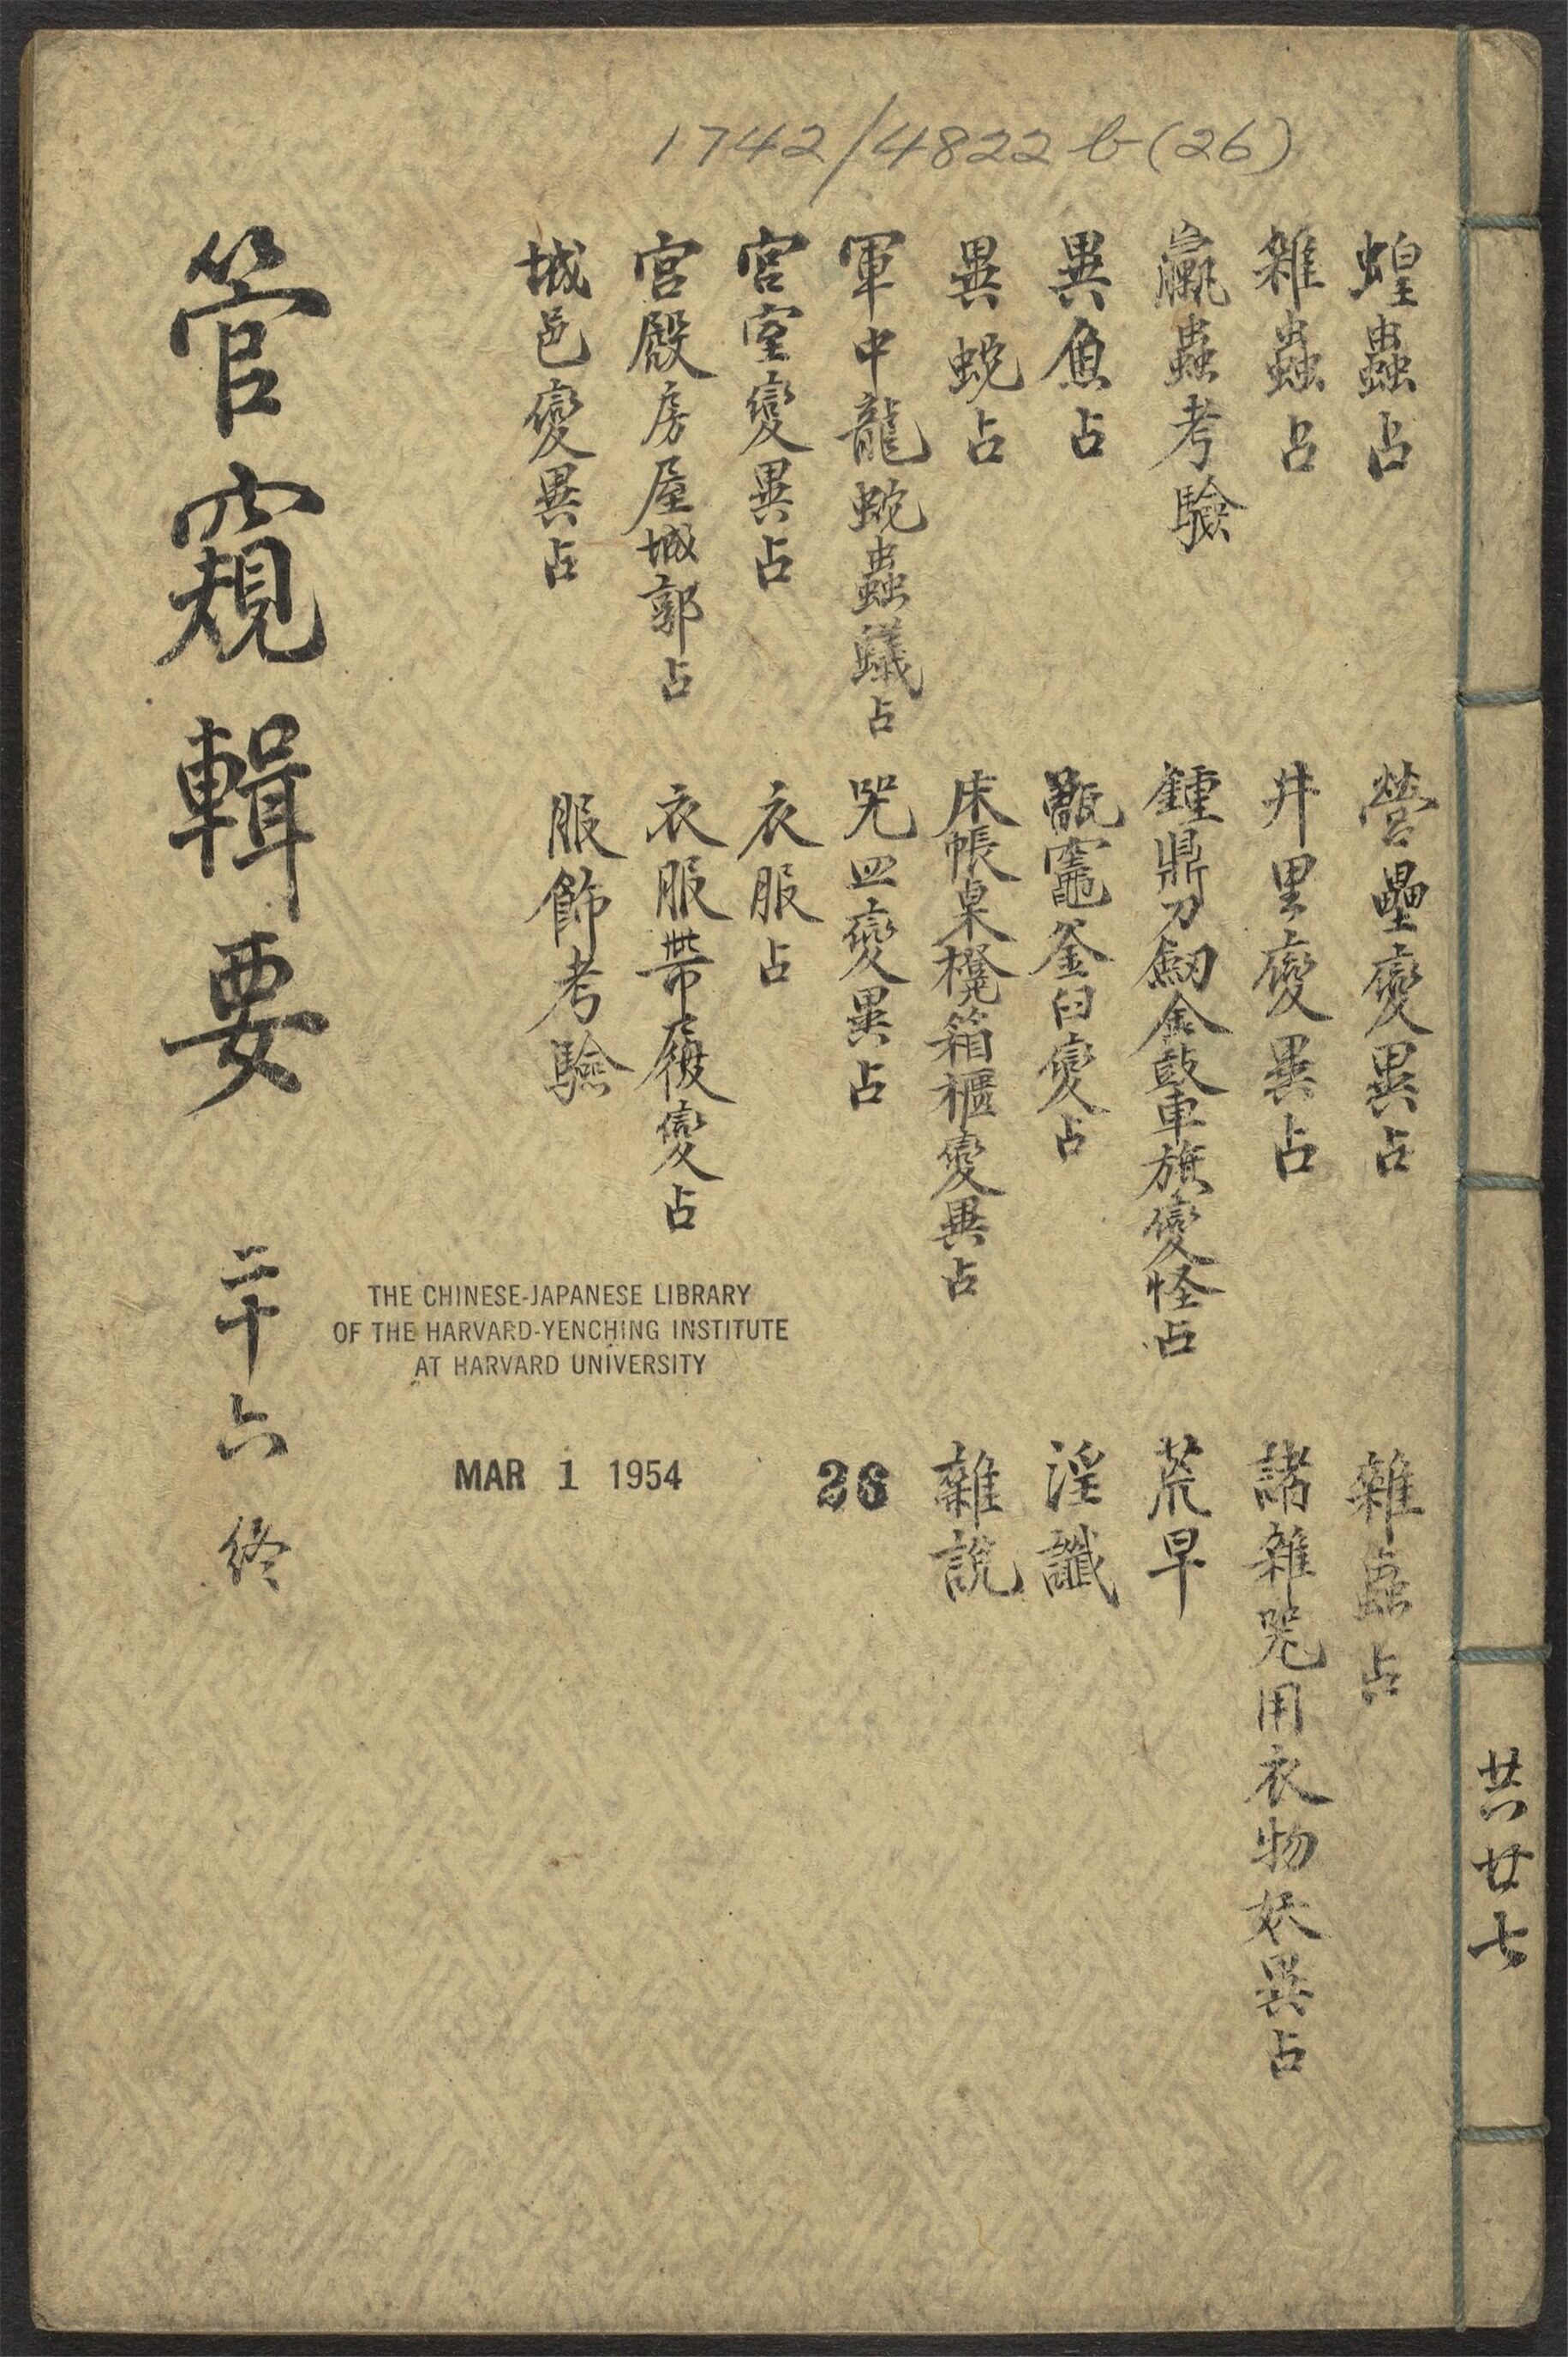 1742/4822 b (26)
蝗蟲占
雜蟲占
臝蟲考驗
異魚占
異蛇占
軍中龍蛇蟲蟻占
宮室變異占
宮殿房屋城郭占
城邑變異占
營壘變異占
井里變異占
鍾鼎刀劒金鼓車旗變怪占
甑竈釜臼變占
床帳桌櫈箱櫃變異占
咒皿變異占
衣服占
衣服帶履變占
服飾考驗
雜蟲占
諸雜咒用衣物妖異占
荒旱
淫讖
雜説
管窺輯要 二十六 終
THE CHINESE-JAPANESE LIBRARY
OF THE HARVARD-YENCHING INSTITUTE
AT HARVARD UNIVERSITY
MAR 1 1954
26
共廿七